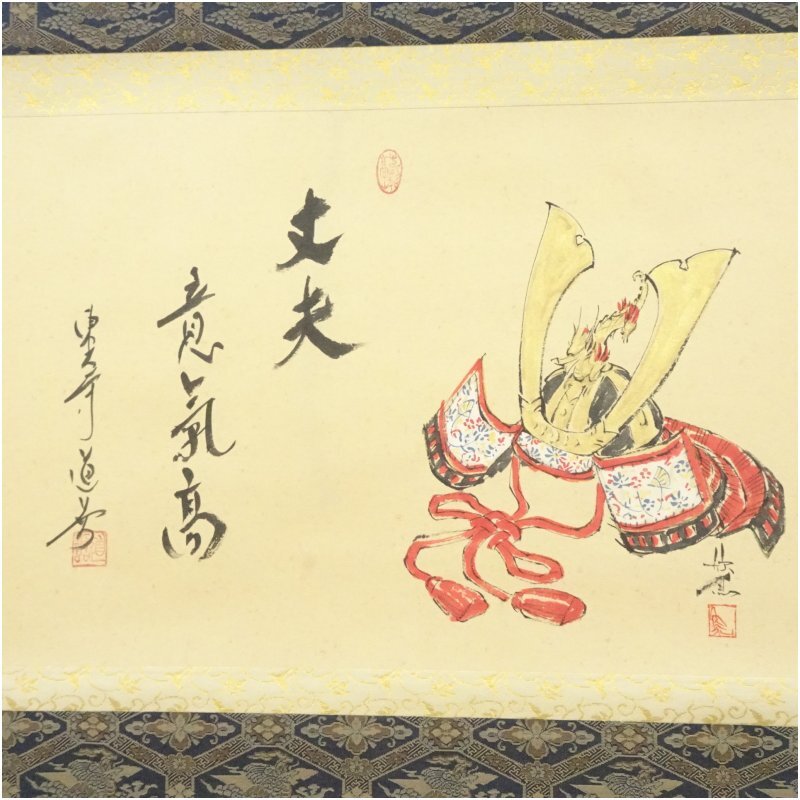 丈夫
意氣高
東大寺道善